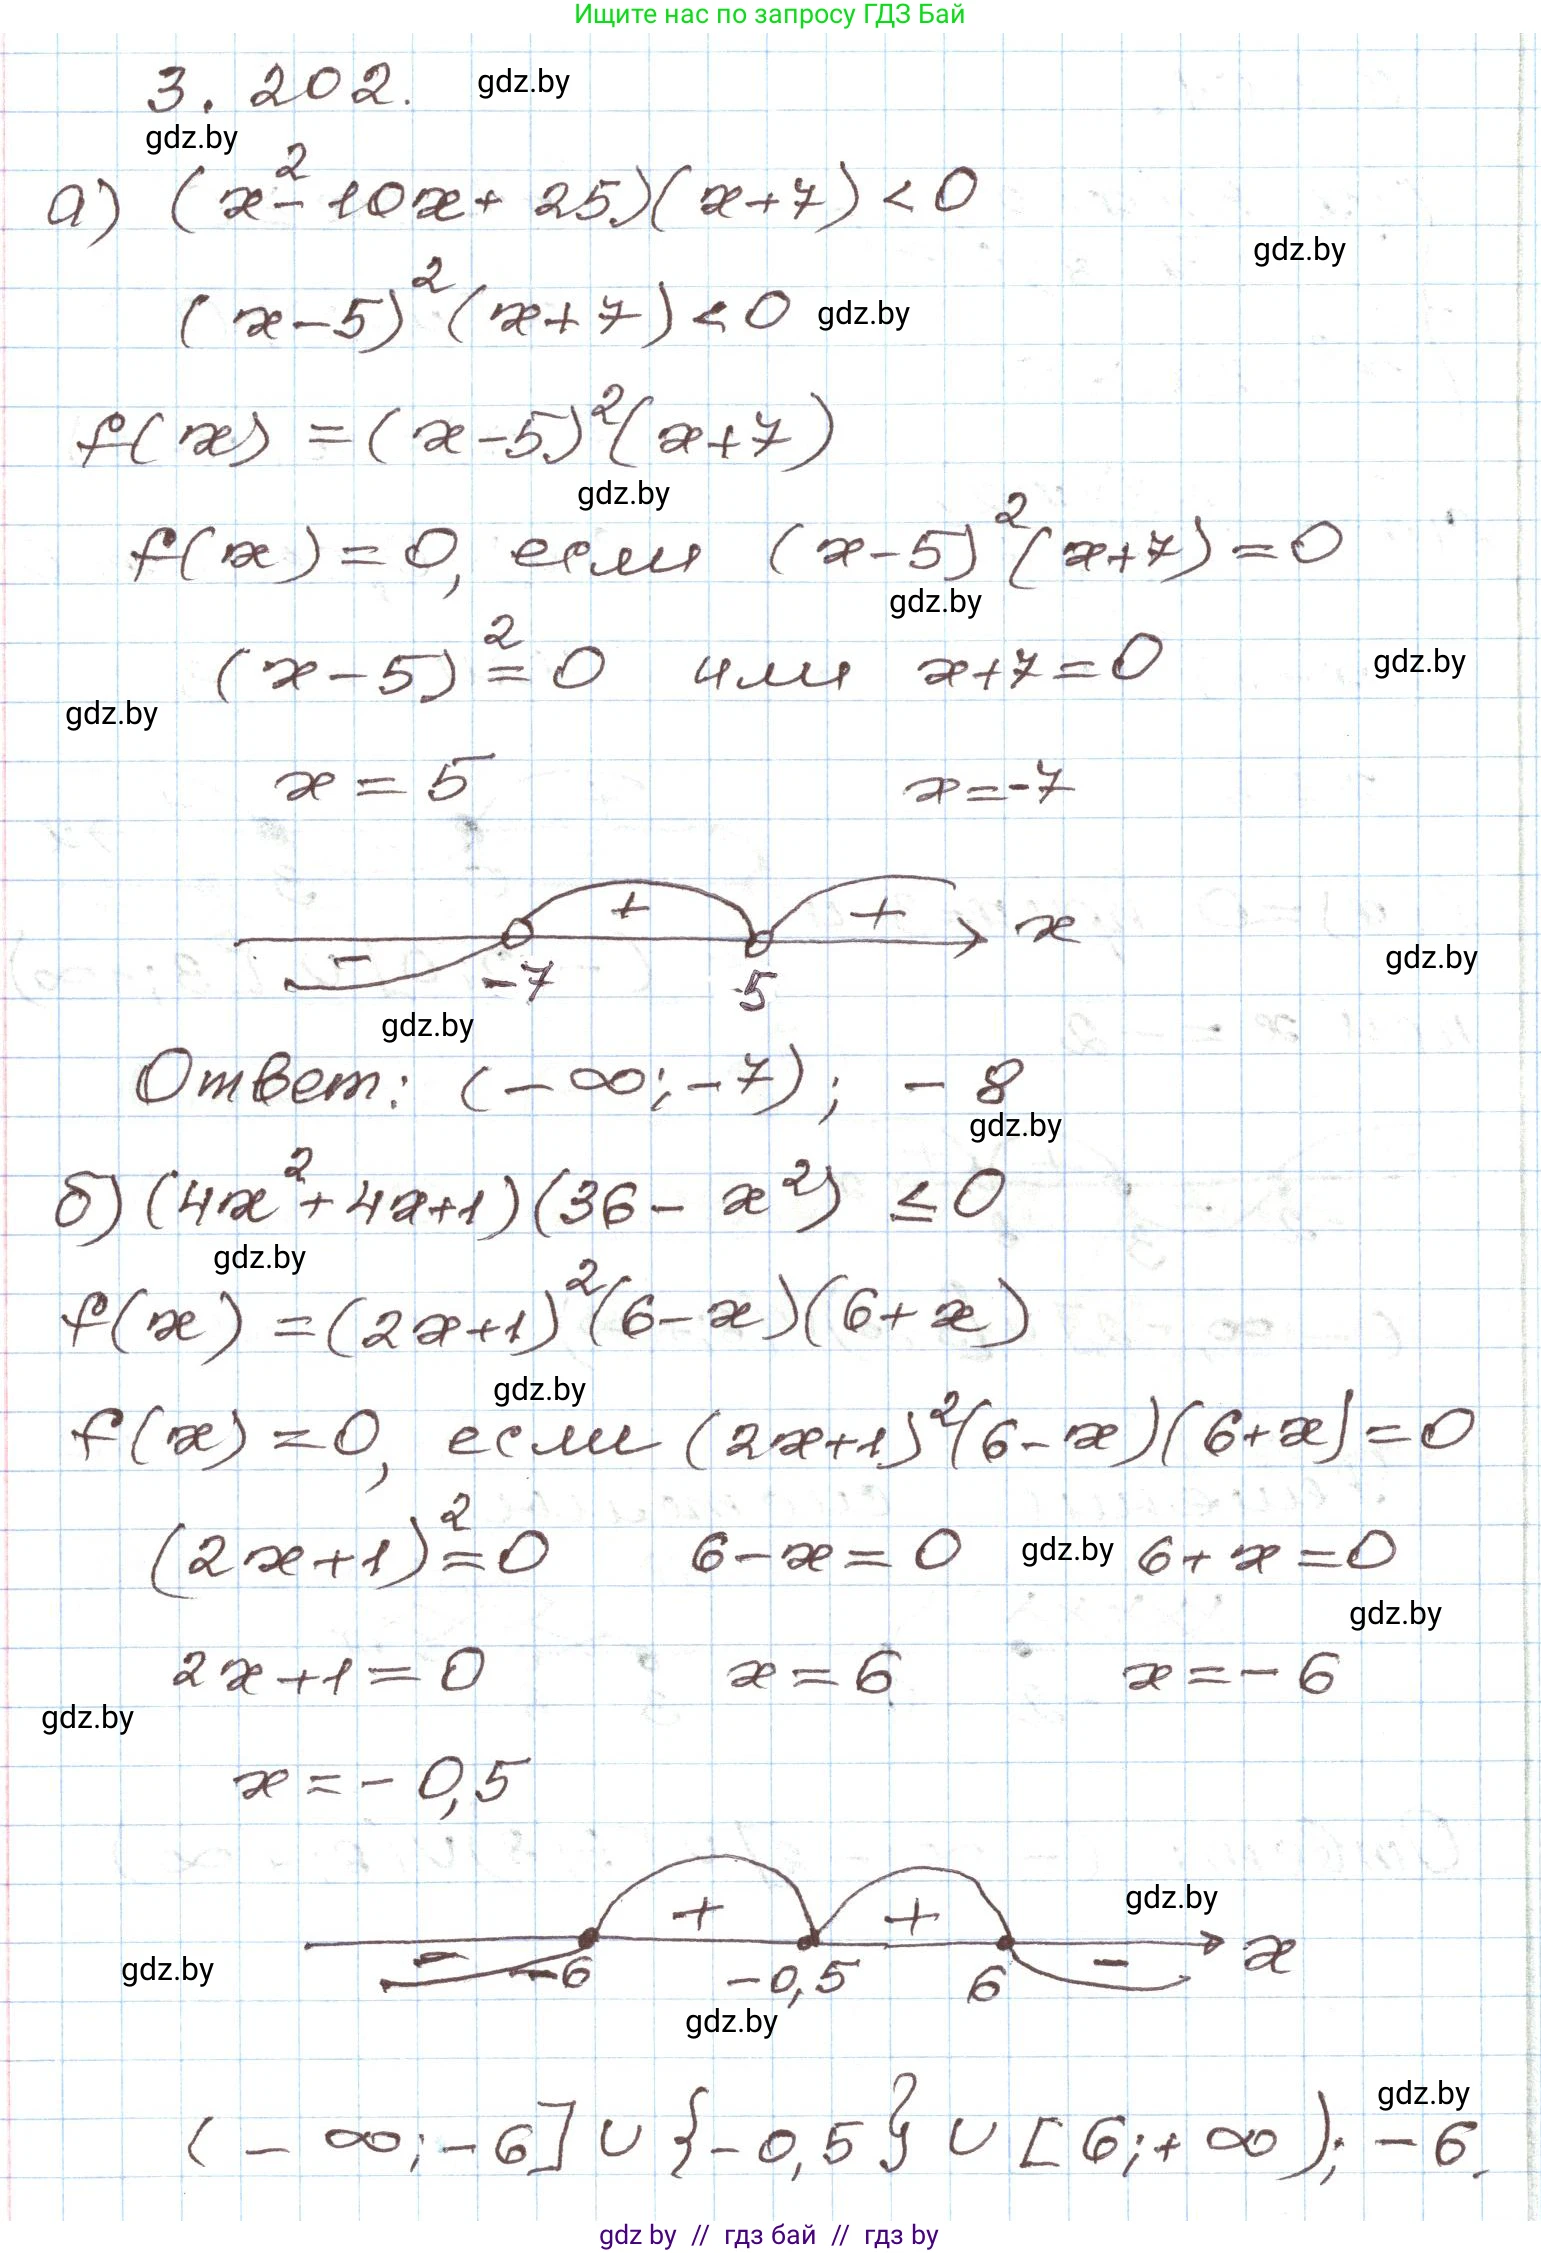 Ищите нас по запросу ГДЗ Бай
3.202. gdz.by
gdz.by
а) (x²-10x+25)(x+7)<0
gdz.by
(x-5)²(x+7)<0 gdz.by
f(x)=(x-5)²(x+7)
gdz.by
f(x)=0, если (x-5)²(x+7)=0
gdz.by
(x-5)²=0 или x+7=0 gdz.by
gdz.by
x=5 x=-7
- + + x
gdz.by
-7 5
gdz.by
Ответ: (-∞;-7); -8
gdz.by
б) (4x²+4x+1)(36-x²)≤0
gdz.by
f(x)=(2x+1)²(6-x)(6+x)
gdz.by
f(x)=0, если (2x+1)²(6-x)(6+x)=0
(2x+1)²=0 6-x=0 gdz.by 6+x=0
gdz.by
2x+1=0 x=6 x=-6
gdz.by
x=-0,5
gdz.by
- + + - x
gdz.by -6 -0,5 6
gdz.by
gdz.by
(-∞;-6]∪{-0,5}∪[6;+∞); -6.
gdz by // гдз бай // гдз by